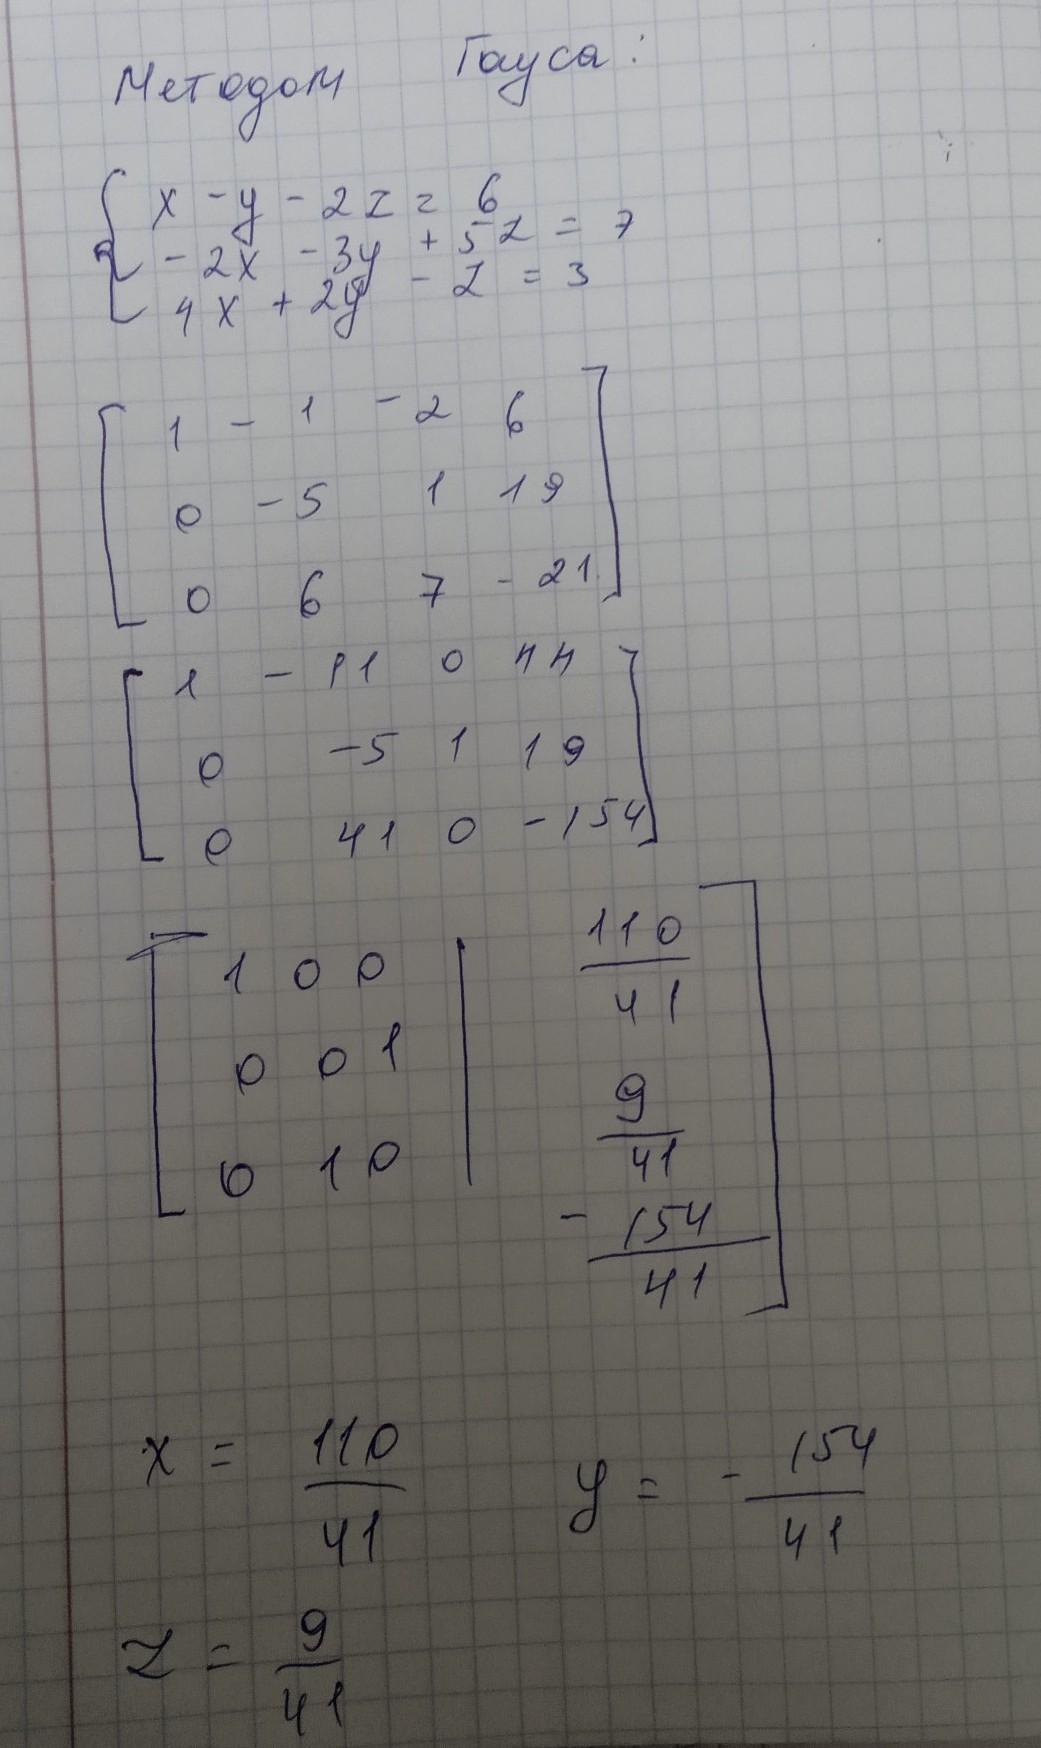 Методом Гауса:
x - y - 2z = 6
- 2x - 3y + 5z = 7
4x + 2y - z = 3
1 - 1 - 2 6
0 - 5 1 19
0 6 7 - 21
1 - 11 0 44
0 -5 1 19
0 41 0 -154
1 0 0 | 110/41
0 0 1 | 9/41
0 1 0 | - 154/41
x = 110/41 y = - 154/41
z = 9/41